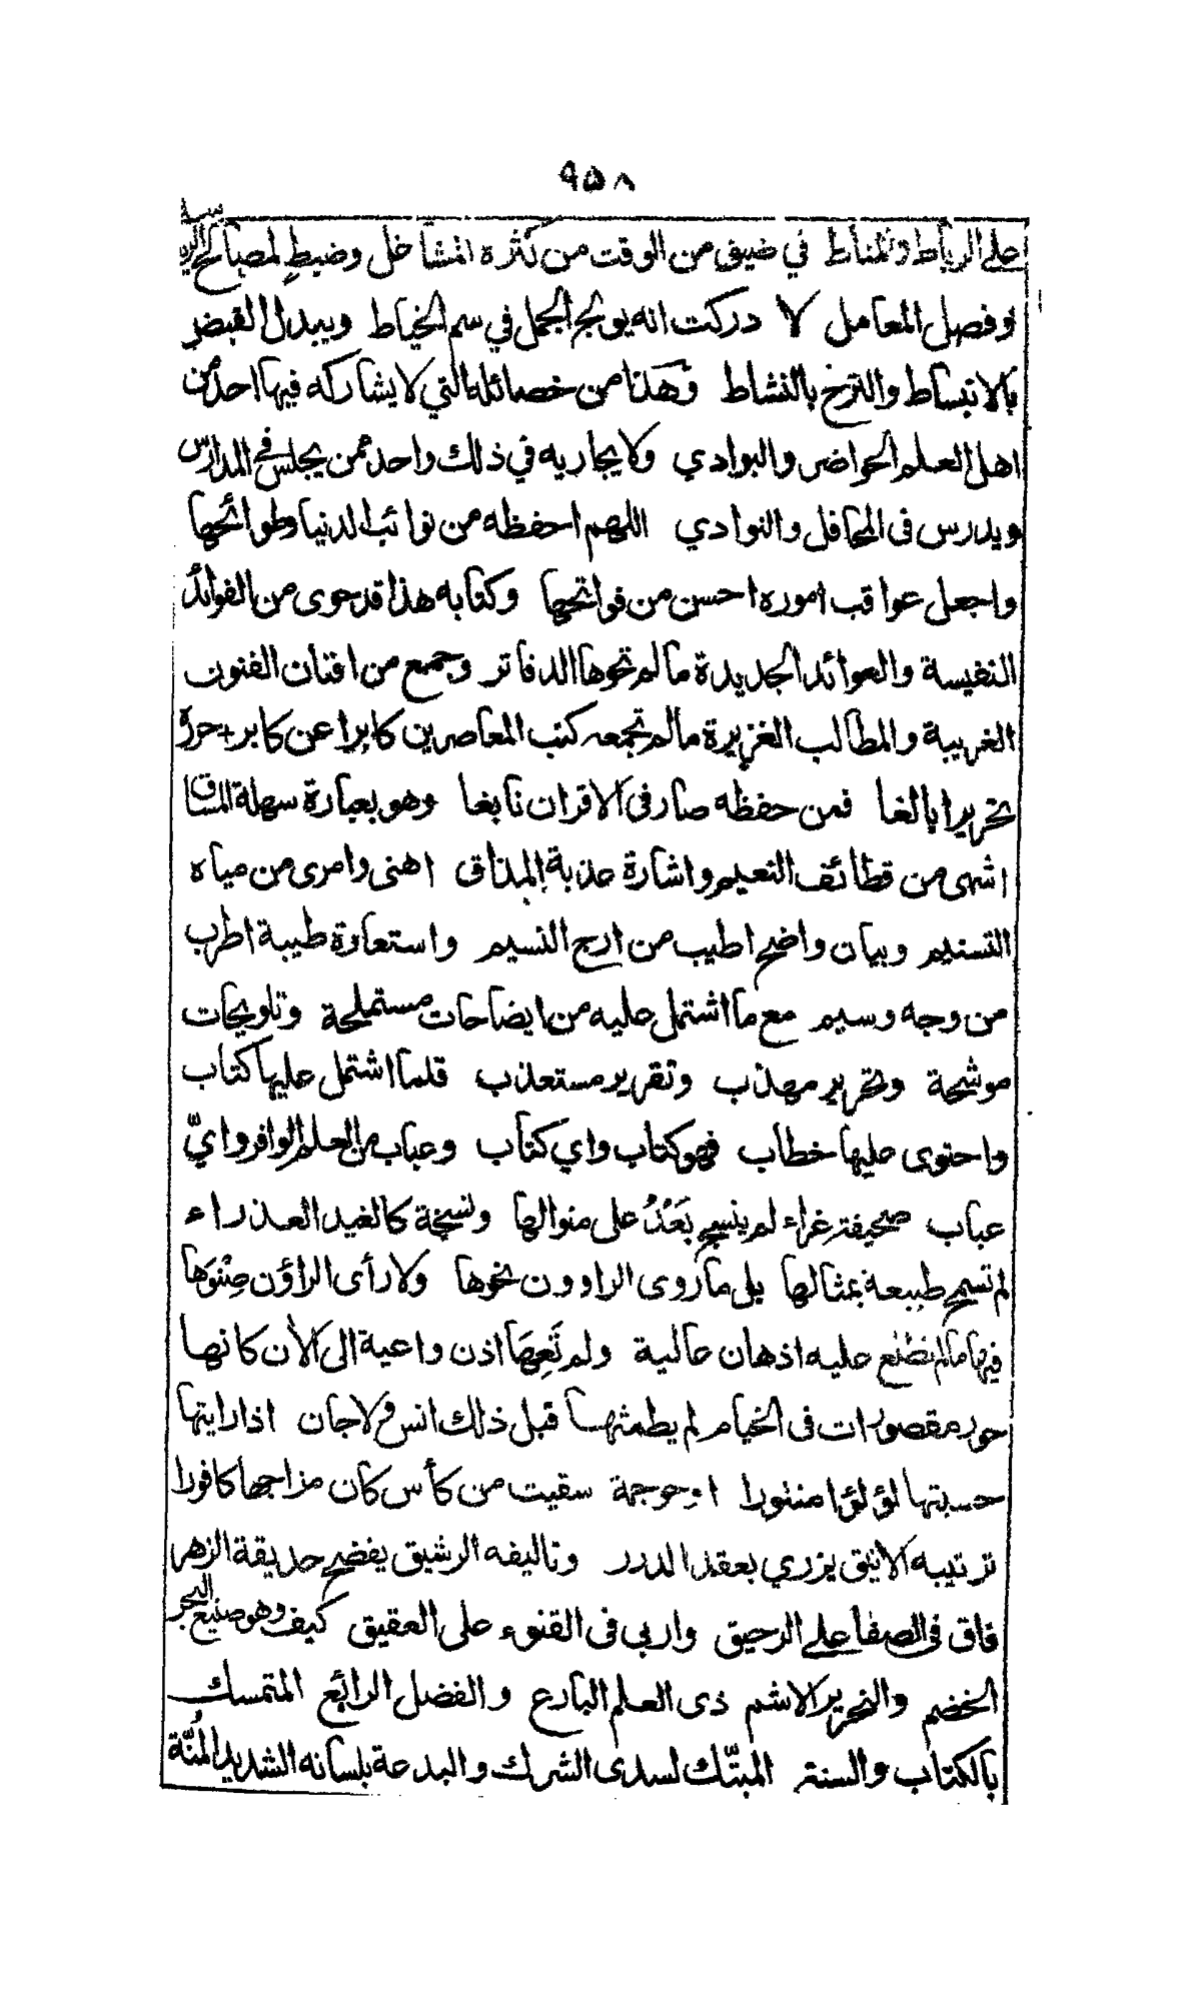 ٩٥٨
على الرباط والمناط في ضيق من الوقت من كثرة المشاغل وضبط لمصالح الرياسة
وفصل المعامل لا دركت انه يولج الجمل في سم الخياط ويبدل القبض
بالانبساط والترح بالنشاط وهذا من خصائله التي لا يشاركه فيها احد من
اهل العلم الحواضر والبوادي ولا يجاريه في ذلك واحد ممن يجلس في المدارس
ويدرس فى المحافل والنوادي اللهم احفظه من نوائب الدنيا وطوائحها
واجعل عواقب اموره احسن من فواتحها وكتابه هذا قد حوى من الفوائد
النفيسة والعوائد الجديدة ما لم تحوها الدفاتر وجمع من افنان الفنون
الغريبة والمطالب الغزيرة مالم تجمعه كتب المعاصرين كابرا عن كابر حرره
تحريرا بالغا فمن حفظه صار فى الاقران نابغا وهو بعبارة سهلة المساق
اشهى من قطائف النعيم واشارة عذبة المذاق اهنى وامرى من مياه
التسنيم وبيان واضح اطيب من اريج النسيم واستعارة طيبة اطرب
من وجه وسيم مع ما اشتمل عليه من ايضاحات مستملحة وتلويحات
موشحة وتحرير مهذب وتقرير مستعذب قلما اشتمل عليها كتاب
واحتوى عليها خطاب فهو كتاب واي كتاب وعباب من العلم الوافر وايّ
عباب صحيفة غراء لم ينسج بَعْدُ على منوالها ونسخة كالغيد العذراء
لم تسمح طبيعة بمثالها بل ما روى الراوون نحوها ولا رأى الراؤن صِنْوَها
فيها مالم تطلع عليه اذهان عالية ولم تَعِهَا اذن واعية الى الأن كانها
حور مقصورات فى الخيام لم يطمثها قبل ذلك انس ولا جان اذا رايتها
حسبتها لؤلؤا منثورا او حوجمة سقيت من كأس كان مزاجها كافورا
ترتيبه الانيق يزري بعقد الدرر وتاليفه الرشيق يفضح حديقة الزهر
فاق فى الصفا على الرحيق واربى فى القنوء على العقيق كيف وهو صنيع البحر
الخضم والنحرير الاشم ذى العلم البارع والفضل الرائع المتمسك
بالكتاب والسنة المبتّك لسدى الشرك والبدعة بلسانه الشديد المُنّة